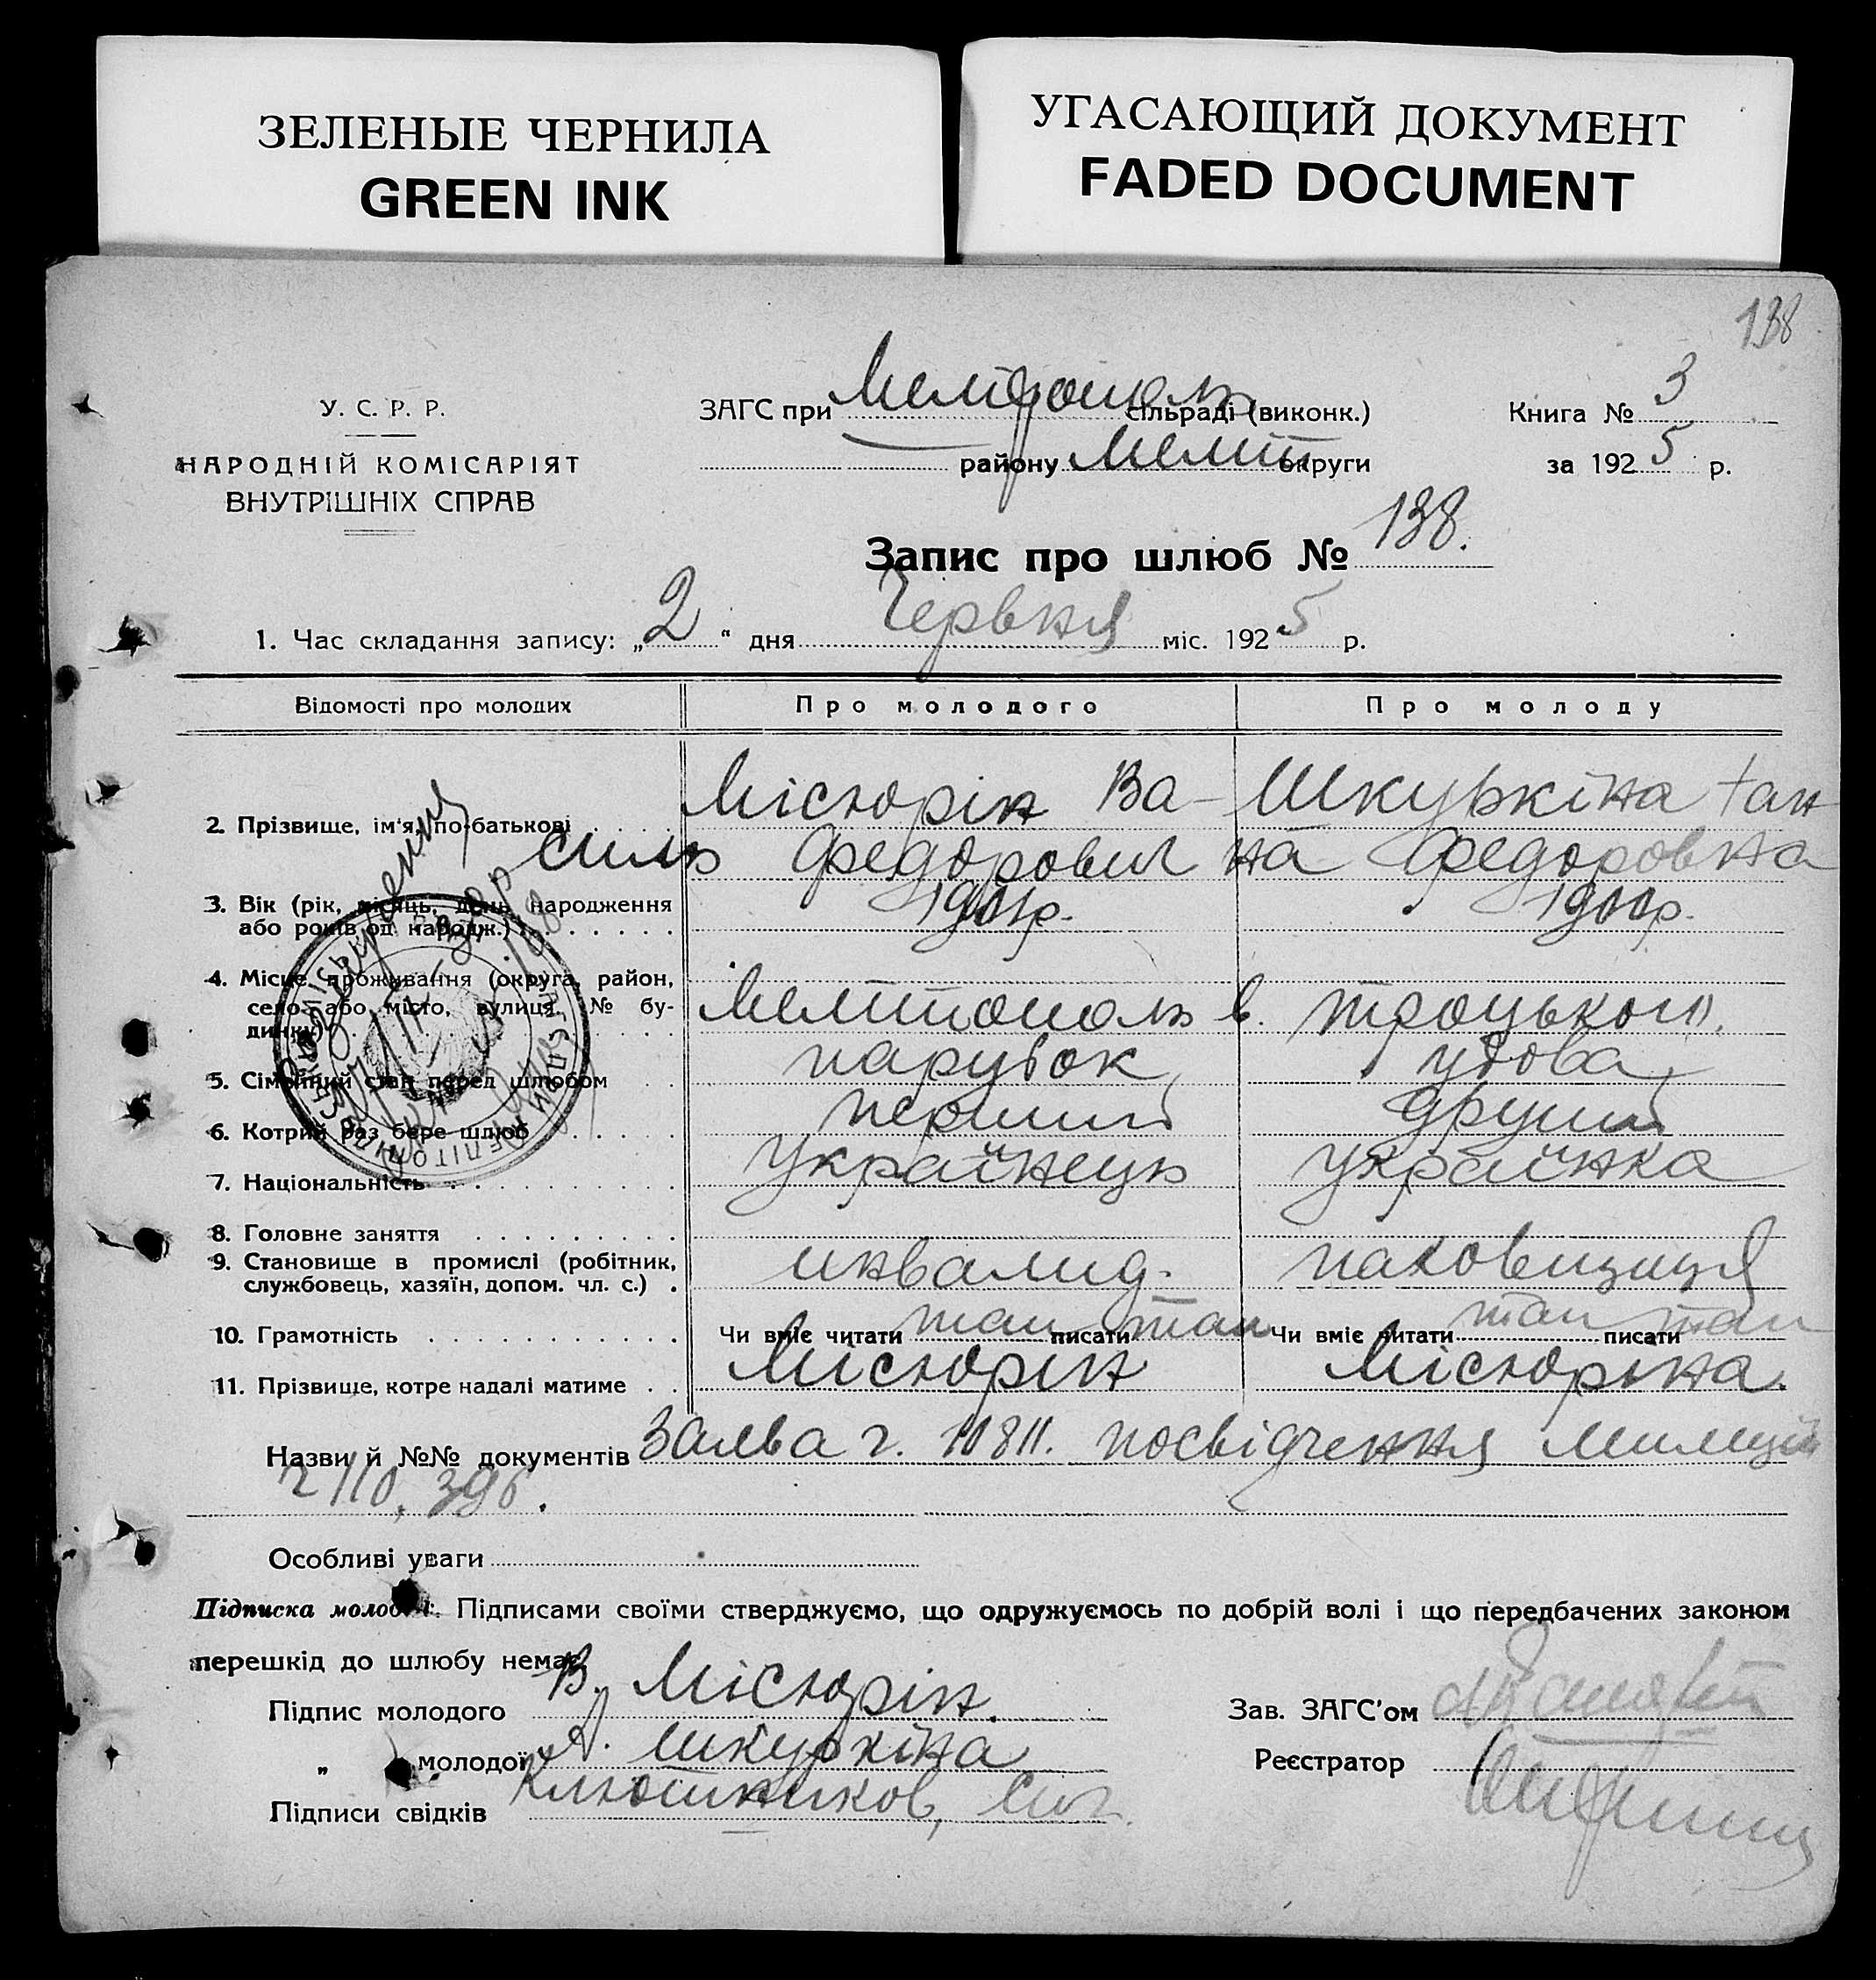 ЗЕЛЕНЫЕ ЧЕРНИЛА
GREEN INK
УГАСАЮЩИЙ ДОКУМЕНТ
FADED DOCUMENT
138
У. С. Р. Р.
НАРОДНІЙ КОМІСАРІЯТ
ВНУТРІШНІХ СПРАВ
ЗАГС при Мелітополь сільраді (виконк.)
району Меліт округи
Книга № 3
за 1925 р.
Запис про шлюб № 138.
1. Час складання запису: „2“ дня Червня міс. 1925 р.
Відомості про молодих Про молодого Про молоду
2. Прізвище, ім'я, по-батькові Місюрін Ва- Шкуркіна Ган
силь Федорович на Федоровна
3. Вік (рік, місяць, день народження 1901р. 1900р.
або років од народж.)
4. Місце проживання (округа, район,
село або місто, вулиця, № бу- Мелітополь в. Троцького.
динку)
5. Сімейний стан перед шлюбом парубок удова
6. Котрий раз бере шлюб перший другий
7. Національність Українець Українка
8. Головне заняття
9. Становище в промислі (робітник, инвалид.
службовець, хазяїн, допом. чл. с.)
10. Грамотність Чи вміє читати так писати так Чи вміє читати так писати так
11. Прізвище, котре надалі матиме Місюрін Місюріна.
Назви й №№ документів Заява ч. 10811. посвідчення Милиції
ч 110, 396.
Особливі уваги
Підписка молодих: Підписами своїми стверджуємо, що одружуємось по добрій волі і що передбачених законом
перешкід до шлюбу немає.
Підпис молодого В. Місюрін.
Зав. ЗАГС'ом
„ молодої А. Шкуркіна
Реєстратор
Підписи свідків Ключников,